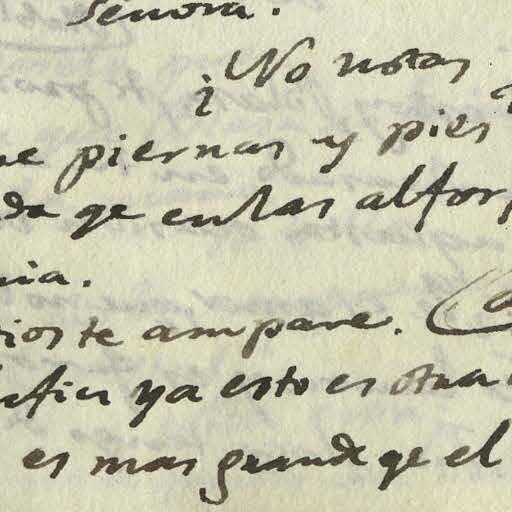 Señora.
¿ No notas
ue piernas y pies
da qe en las alfor
nia.
ios te ampare.
ya esto es otra
es mas grande qe el